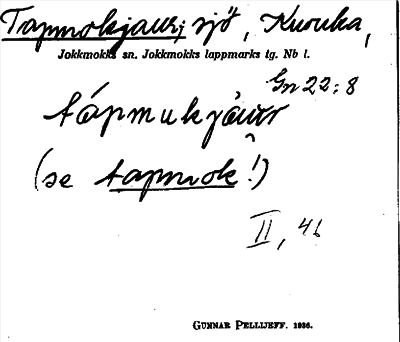 Tapmokjaur, sjö, Kuouka,
Jokkmokks sn. Jokkmokks lappmarks tg. Nb l.
Gn 22:8
tápmukjáurr
(se tapmok!)
II, 46
GUNNAR PELLIJEFF. 1936.